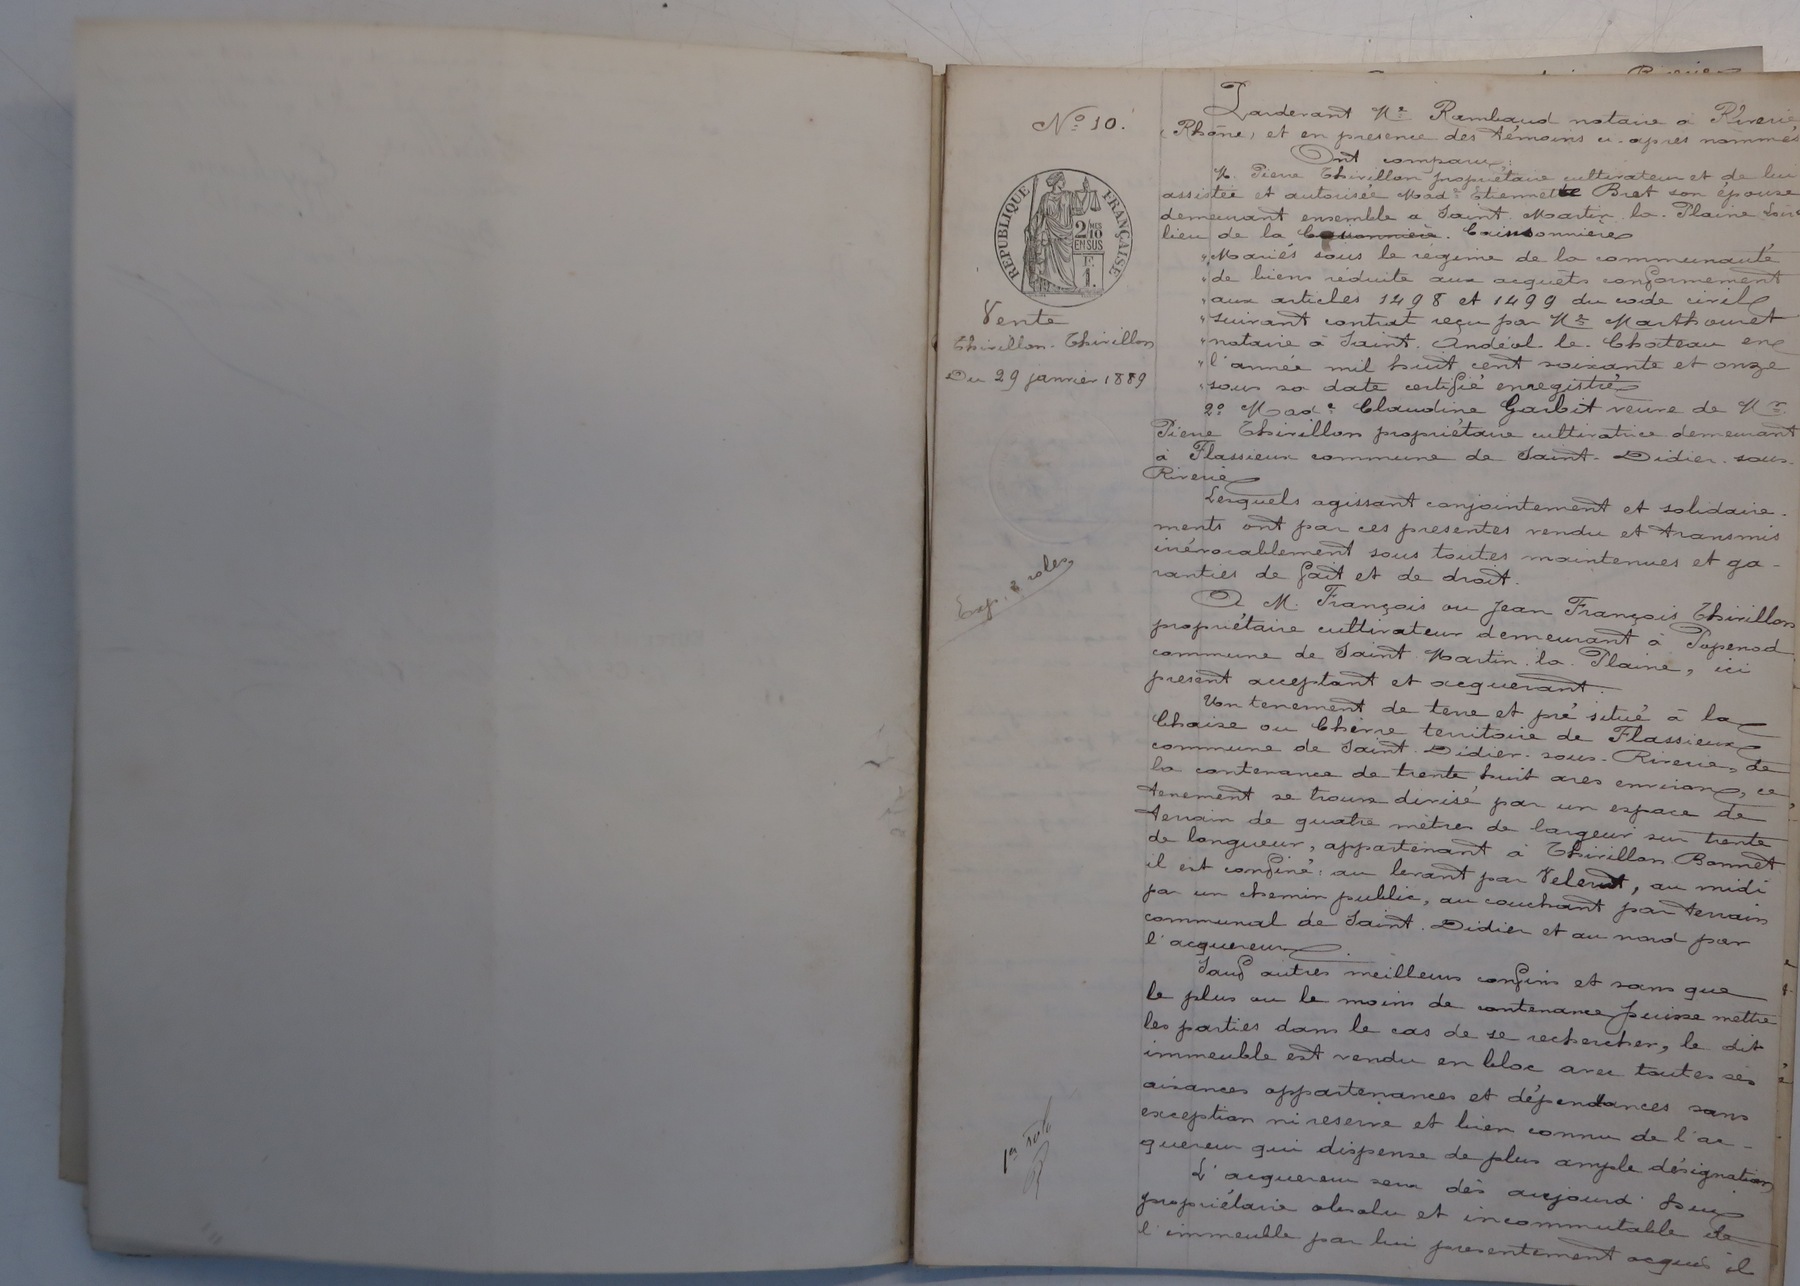 N° 10.
RÉPUBLIQUE FRANÇAISE
2 MES
10
EN SUS
F.
1.
Vente
Thivillon-Thivillon
Du 29 janvier 1889
Exp. 2 roles
1er role
Pardevant Me Rambaud notaire à Riverie
(Rhône) et en présence des témoins ci-après nommés
Ont comparu:
M. Pierre Thivillon propriétaire cultivateur et de lui
assistée et autorisée Made Etiennette Bret son épouse
demeurant ensemble a Saint Martin la Plaine Loire
lieu de la Caissonnière
" Mariés sous le régime de la communauté
" de biens réduite aux acquets conformement
" aux articles 1498 et 1499 du code civil
" suivant contrat reçu par Me Marthouret
" notaire à Saint Andéol le Chateau en
" l'année mil huit cent soixante et onze
" sous sa date certifié enregistré
2° Made Claudine Garbit veuve de Mr
Pierre Thivillon propriétaire cultivatrice demeurant
à Flassieux commune de Saint-Didier-sous-
Riverie
Lesquels agissant conjointement et solidaire-
ments ont par ces presentes vendu et transmis
irrévocablement sous toutes maintenues et ga-
ranties de fait et de droit.
A M. François ou Jean François Thivillon
propriétaire cultivateur demeurant à Papenod
commune de Saint Martin la Plaine, ici
présent acceptant et acquerant.
Un tenement de terre et pré situé à la
Chaize ou Chèvre territoire de Flassieux
commune de Saint Didier-sous-Riverie, de
la contenance de trente huit ares environ, ce
tenement se trouve divisé par un espace de
terrain de quatre mètres de largeur sur trente
de longueur, appartenant à Thivillon Bonnet
il est confiné: au levant par Velerut, au midi
par un chemin public, au couchant par terrain
communal de Saint Didier et au nord par
l'acquereur.
Sauf autres meilleurs confins et sans que
le plus ou le moins de contenance puisse mettre
les parties dans le cas de se rechercher, le dit
immeuble est vendu en bloc avec toutes ses
aisances appartenances et dépendances sans
exception ni reserve et bien connu de l'ac-
quereur qui dispense de plus ample désignation
L'acquereur sera dès aujourd'hui
propriétaire absolu et incommutable de
l'immeuble par lui presentement acquis il